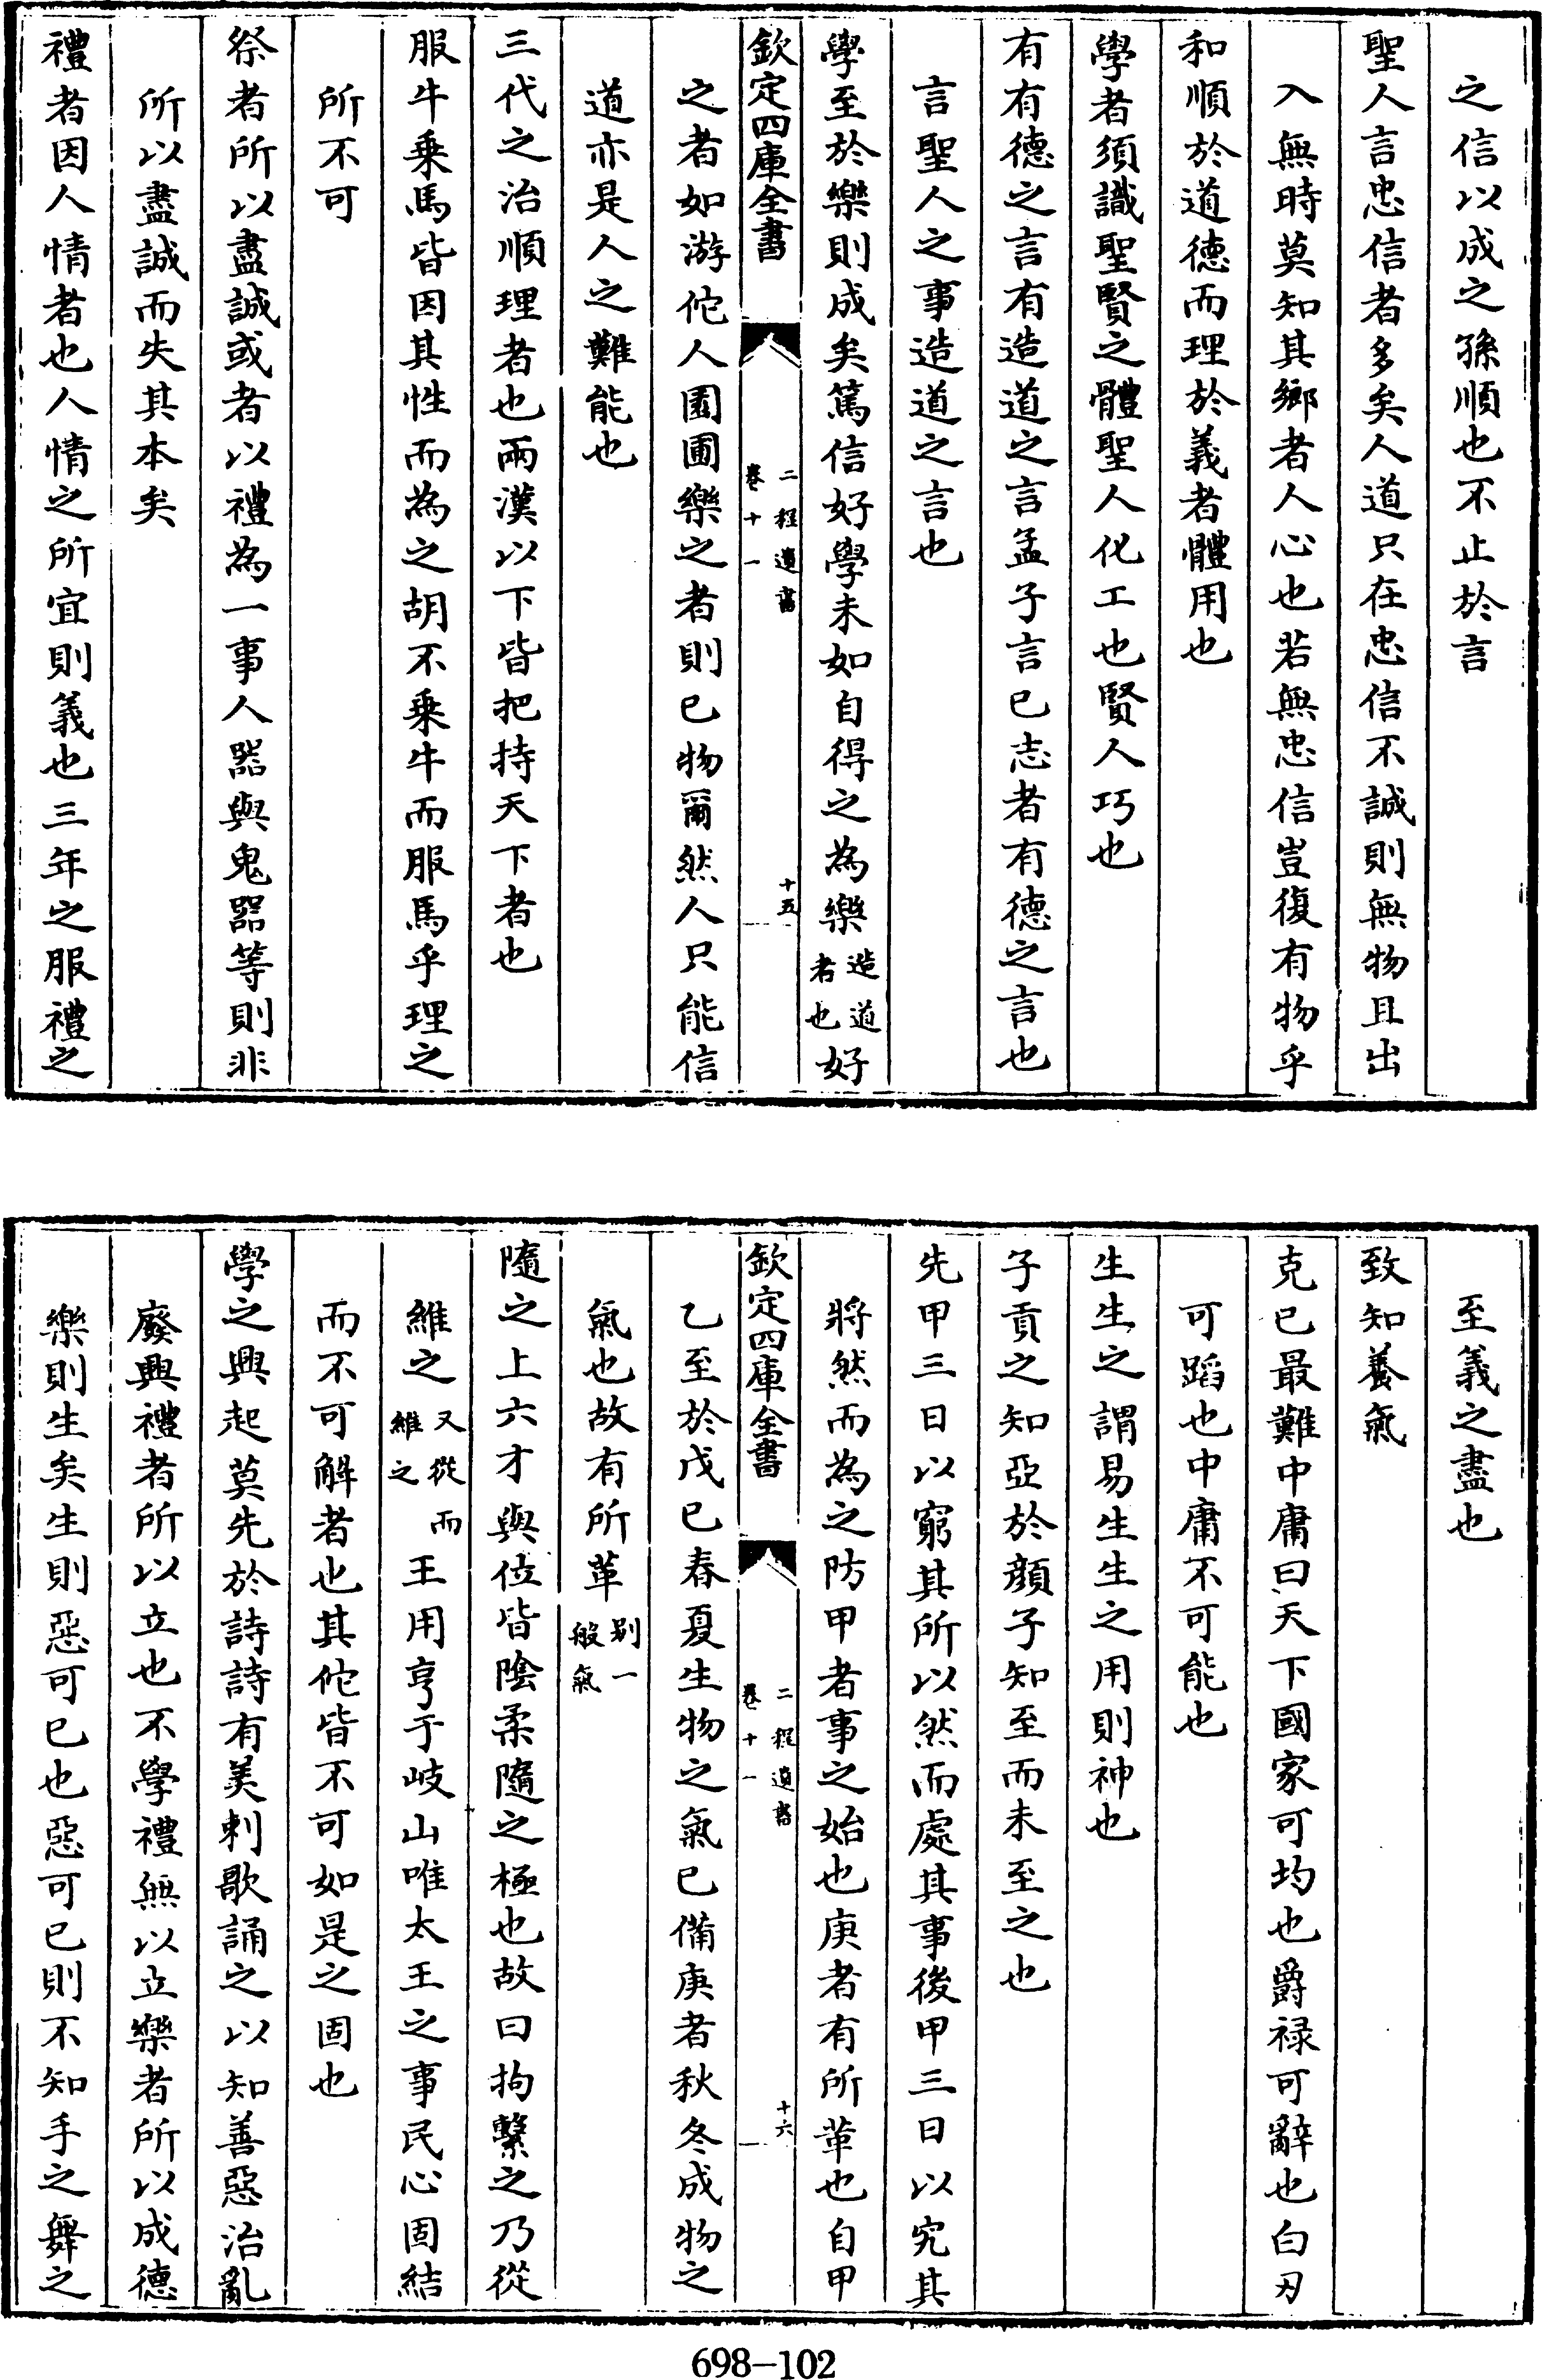 之信以成之孫順也不止於言
聖人言忠信者多矣人道只在忠信不誠則無物且出
入無時莫知其鄉者人心也若無忠信豈復有物乎
和順於道德而理於義者體用也
學者須識聖賢之體聖人化工也賢人巧也
有有德之言有造道之言孟子言已志者有德之言也
言聖人之事造道之言也
學至於樂則成矣篤信好學未如自得之為樂造道者也好
欽定四庫全書
二程遺書
卷十一
十五
之者如游佗人園圃樂之者則已物爾然人只能信
道亦是人之難能也
三代之治順理者也兩漢以下皆把持天下者也
服牛乗馬皆因其性而為之胡不乗牛而服馬乎理之
所不可
祭者所以盡誠或者以禮為一事人器與鬼器等則非
所以盡誠而失其本矣
禮者因人情者也人情之所宜則義也三年之服禮之
至義之盡也
致知養氣
克已最難中庸曰天下國家可均也爵禄可辭也白刃
可蹈也中庸不可能也
生生之謂易生生之用則神也
子貢之知亞於顔子知至而未至之也
先甲三日以窮其所以然而處其事後甲三日以究其
將然而為之防甲者事之始也庚者有所革也自甲
欽定四庫全書
二程遺書
卷十一
十六
乙至於戊已春夏生物之氣已備庚者秋冬成物之
氣也故有所革别一般氣
隨之上六才與位皆陰柔隨之極也故曰拘繫之乃從
維之又從而維之王用亨于岐山唯太王之事民心固結
而不可解者也其佗皆不可如是之固也
學之興起莫先於詩詩有美刺歌誦之以知善惡治亂
廢興禮者所以立也不學禮無以立樂者所以成德
樂則生矣生則惡可已也惡可已則不知手之舞之
698-102